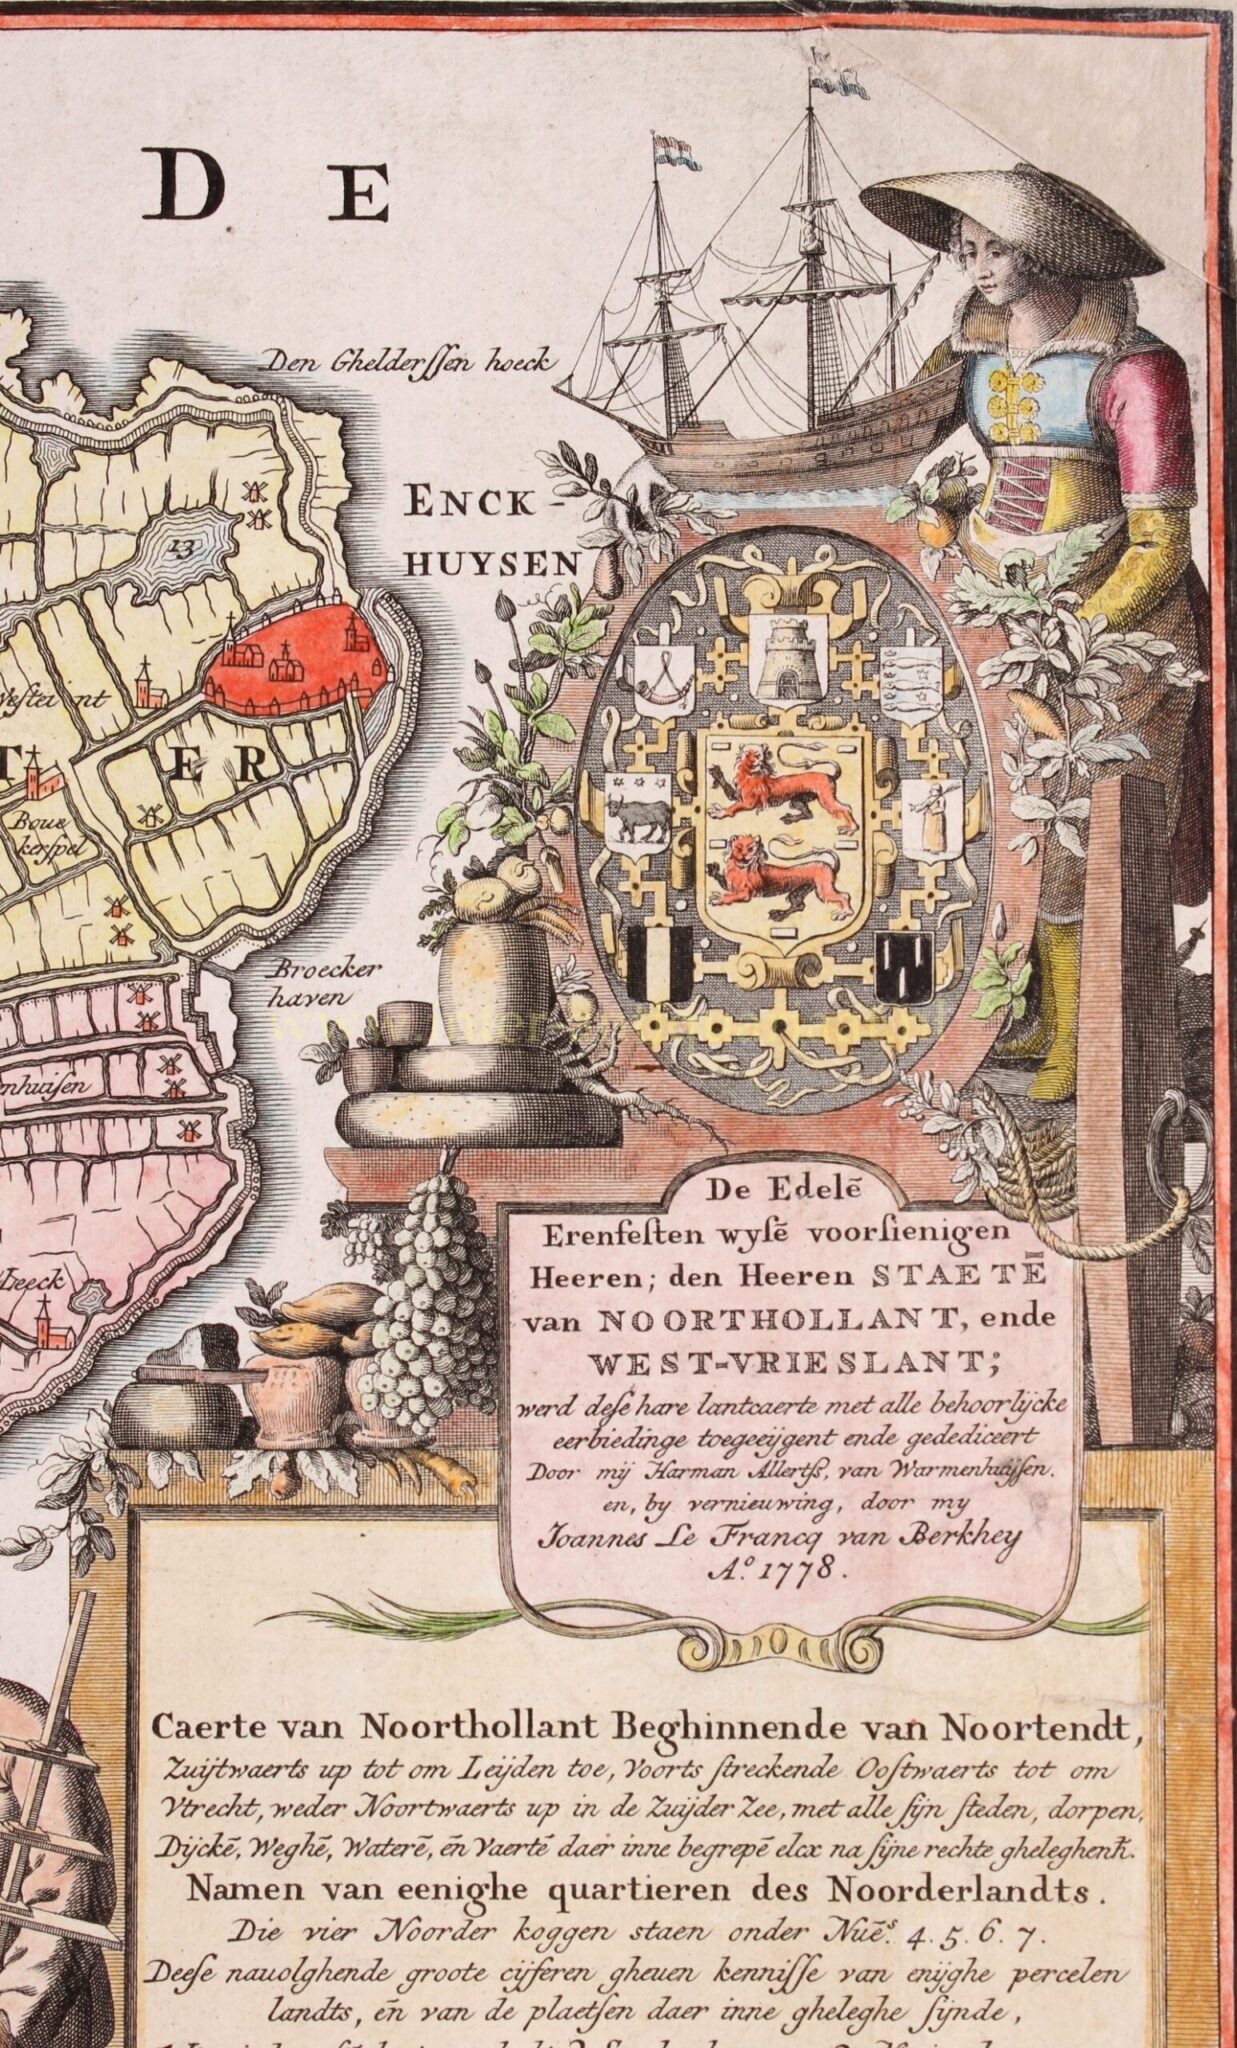 D E
Den Ghelderſſen hoeck
ENCK-
HUYSEN
13
E R
Boue
kerſpel
Broecker
haven
nhuiſen
Leeck
De Edelē
Erenfeſten wyſē voorſienigen
Heeren; den Heeren STAETĒ
van NOORTHOLLANT, ende
WEST-VRIESLANT;
werd deſe hare lantcaerte met alle behoorlijcke
eerbiedinge toegeeijgent ende gedediceert
Door mij Harman Allertſs, van Warmenhuijſen.
en, by vernieuwing, door my
Joannes Le Francq van Berkhey
Aº. 1778.
Caerte van Noorthollant Beghinnende van Noortendt,
Zuijtwaerts up tot om Leijden toe, Voorts ſtreckende Ooſtwaerts tot om
Vtrecht, weder Noortwaerts up in de Zuijder Zee, met alle ſijn ſteden, dorpen,
Dijckē, Weghē, Waterē, ēn Vaertē daer inne begrepē elcx na ſijne rechte gheleghenħ.
Namen van eenighe quartieren des Noorderlandts.
Die vier Noorder koggen staen onder Nuēs. 4. 5. 6. 7.
Deeſe nauolghende groote cijferen gheuen kenniſſe van enijghe percelen
landts, ēn van de plaetſen daer inne gheleghe ſijnde,